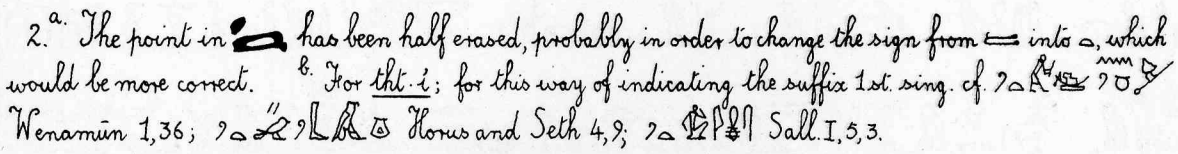 2. a. The point in has been half erased, probably in order to change the sign from into , which
would be more correct. b. For tht·i; for this way of indicating the suffix 1st. sing. cf.
Wenamūn 1,36; Horus and Seth 4,9; Sall. I, 5, 3.